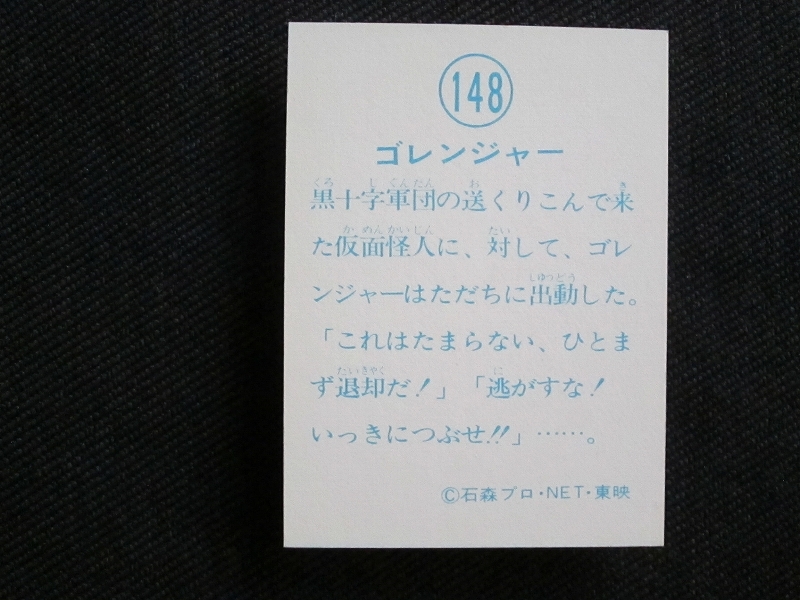 148
ゴレンジャー
黒十字軍団の送くりこんで来
た仮面怪人に、対して、ゴレ
ンジャーはただちに出動した。
「これはたまらない、ひとま
ず退却だ!」「逃がすな!
いっきにつぶせ!!」……。
©石森プロ・NET・東映